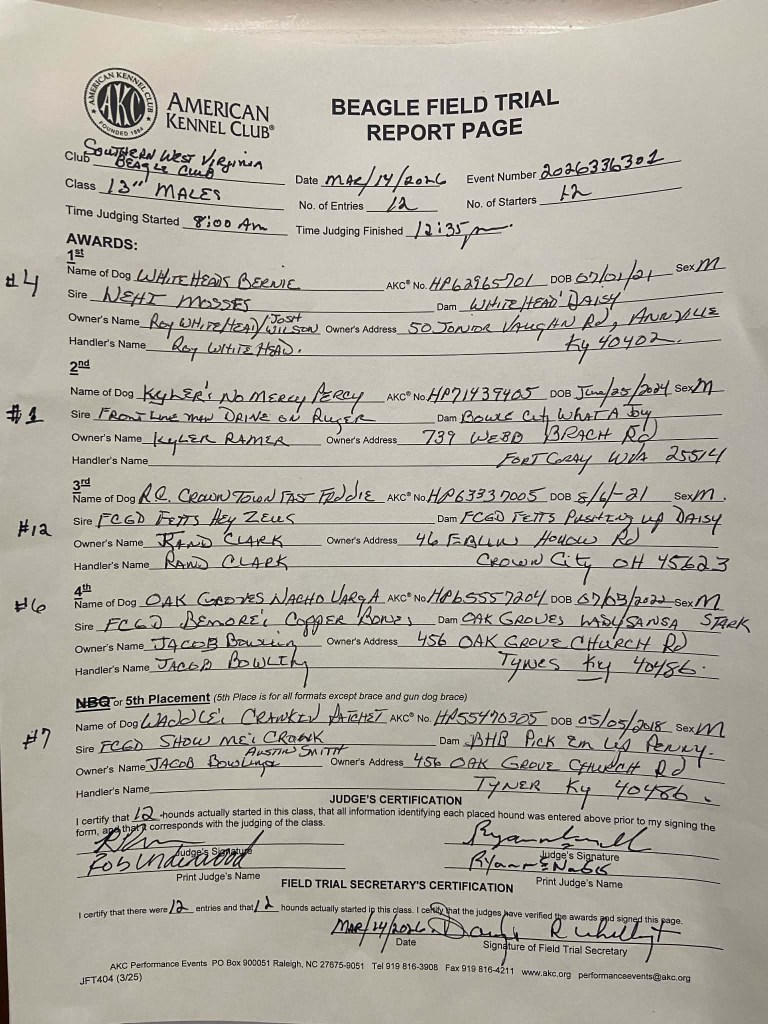 AMERICAN KENNEL CLUB
AKC
FOUNDED 1884
AMERICAN
KENNEL CLUB®
BEAGLE FIELD TRIAL
REPORT PAGE
Club SOUTHERN WEST VIRGINIA BEAGLE CLUB Date MAR/14/2026 Event Number 2026336301
Class 13" MALES No. of Entries 12 No. of Starters 12
Time Judging Started 8:00 Am Time Judging Finished 12:35 pm
AWARDS:
1st
#4 Name of Dog WHITEHEADS BERNIE AKC® No. HP62965701 DOB 07/01/21 Sex M
Sire NEHI MOSSES Dam WHITEHEAD' DAISY
Owner's Name Roy WHITEHEAD/JOSH WILSON Owner's Address 50 JUNIOR VAUGHN Rd, ANNVILLE
Handler's Name Roy WHITEHEAD. Ky 40402.
2nd
Name of Dog KYLER'S NO MERCY PERCY AKC® No. HP71439405 DOB June/25/2024 Sex M
#1 Sire FRONT LINE MAN DRIVE ON RUGER Dam BOWE City WHAT A
Owner's Name KYLER RAMER Owner's Address 739 WEBB BRACH Rd
Handler's Name FORT GRAY WVA 25514
3rd
Name of Dog R.C. CROWN TOWN FAST FREDDIE AKC® No. HP63337005 DOB 8/6/-21 Sex M.
#12 Sire FCGD FETTS HEY ZEUS Dam FCGD FETTS PUSHING UP DAISY
Owner's Name RAND CLARK Owner's Address 46 HOLLOW Rd
Handler's Name RAND CLARK CROWN CITY OH 45623
4th
#6 Name of Dog OAK GROVES NACHO VARGA AKC® No. HP65557204 DOB 07/03/2022 Sex M
Sire FCGD COPPER BONES Dam OAK GROVES LADY SANSA STARK
Owner's Name JACOB BOWLING Owner's Address 456 OAK GROVE CHURCH Rd
Handler's Name JACOB BOWLING TYNES Ky 40486.
NBQ or 5th Placement (5th Place is for all formats except brace and gun dog brace)
Name of Dog WADDLE'S CRANKIN RATCHET AKC® No. HP55470305 DOB 05/05/2018 Sex M
#7 Sire FCGD SHOW ME'S CRANK Dam BHB PICK EM UP PENNY.
Owner's Name JACOB BOWLING AUSTIN SMITH Owner's Address 456 OAK GROVE CHURCH Rd
Handler's Name TYNER Ky 40486.
JUDGE'S CERTIFICATION
I certify that 12 -hounds actually started in this class, that all information identifying each placed hound was entered above prior to my signing the
form, and that it corresponds with the judging of the class.
Judge's Signature Judge's Signature
Rob Underwood Ryan
Print Judge's Name Print Judge's Name
FIELD TRIAL SECRETARY'S CERTIFICATION
I certify that there were 12 entries and that 12 hounds actually started in this class. I certify that the judges have verified the awards and signed this page.
MAR/14/2026
Date Signature of Field Trial Secretary
AKC Performance Events PO Box 900051 Raleigh, NC 27675-9051 Tel 919 816-3908 Fax 919 816-4211 www.akc.org performanceevents@akc.org
JFT404 (3/25)